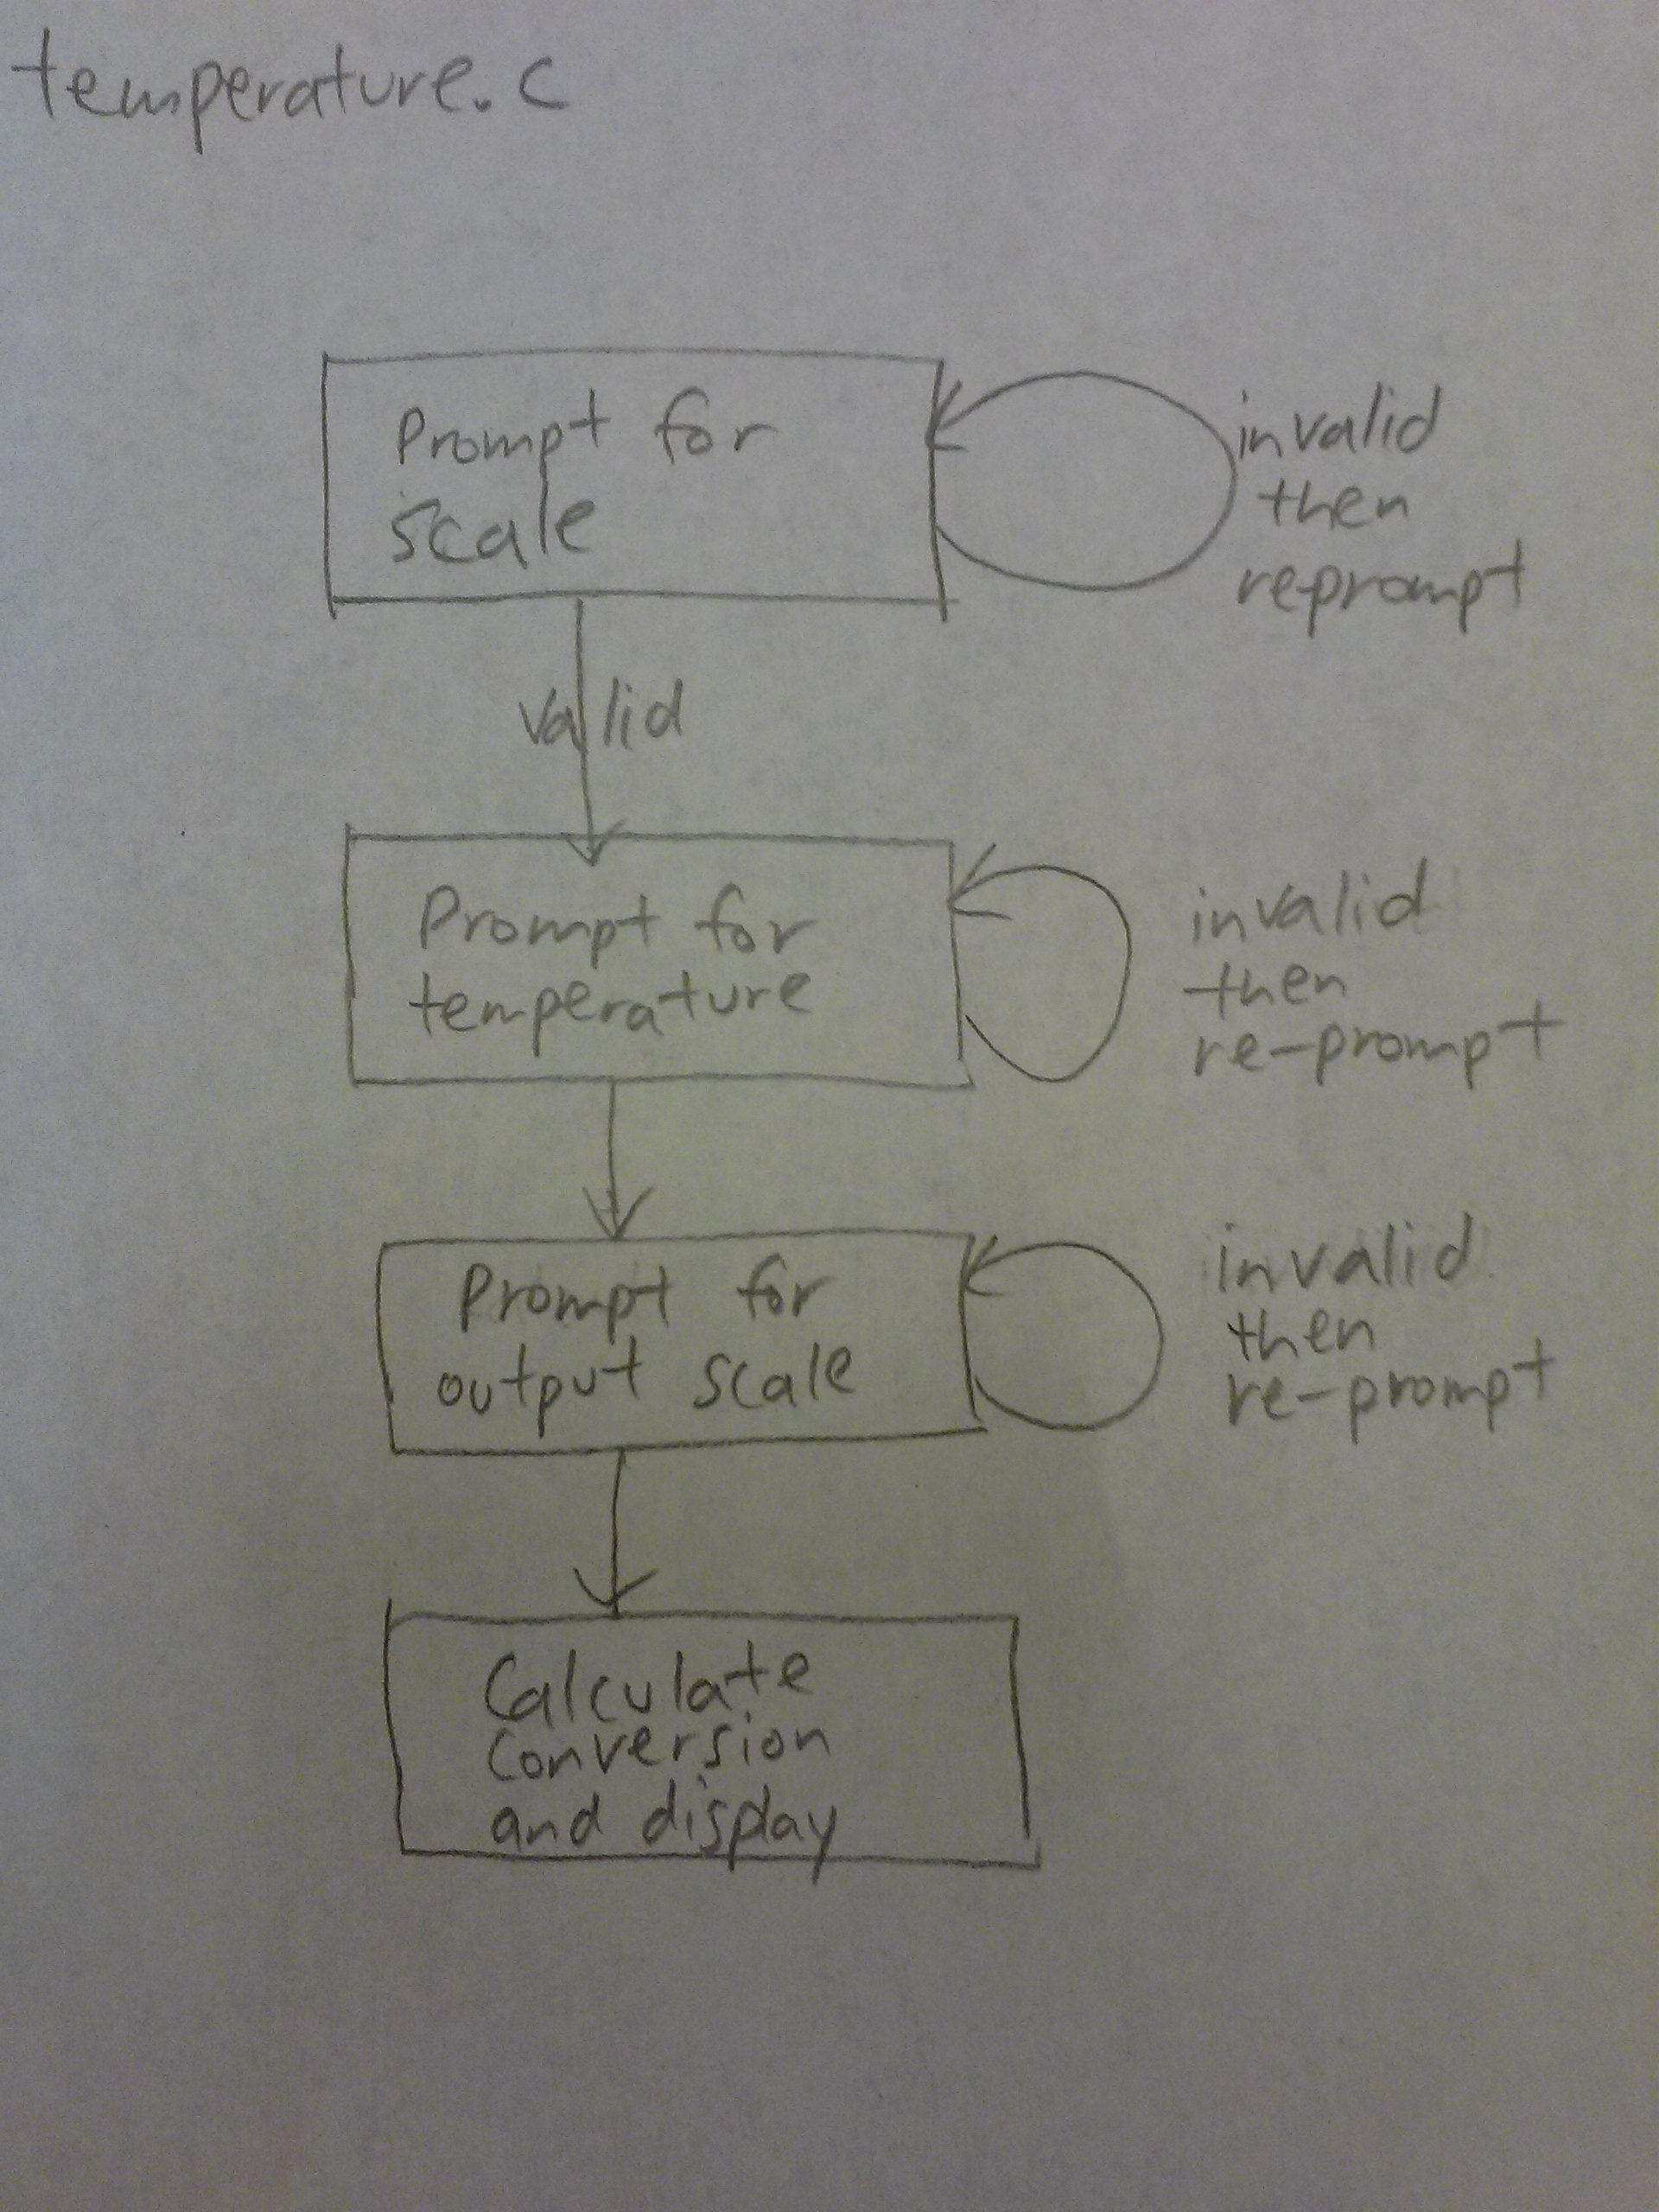 temperature.c
Prompt for
scale
invalid
then
reprompt
valid
Prompt for
temperature
invalid
then
re-prompt
Prompt for
output scale
invalid
then
re-prompt
Calculate
conversion
and display